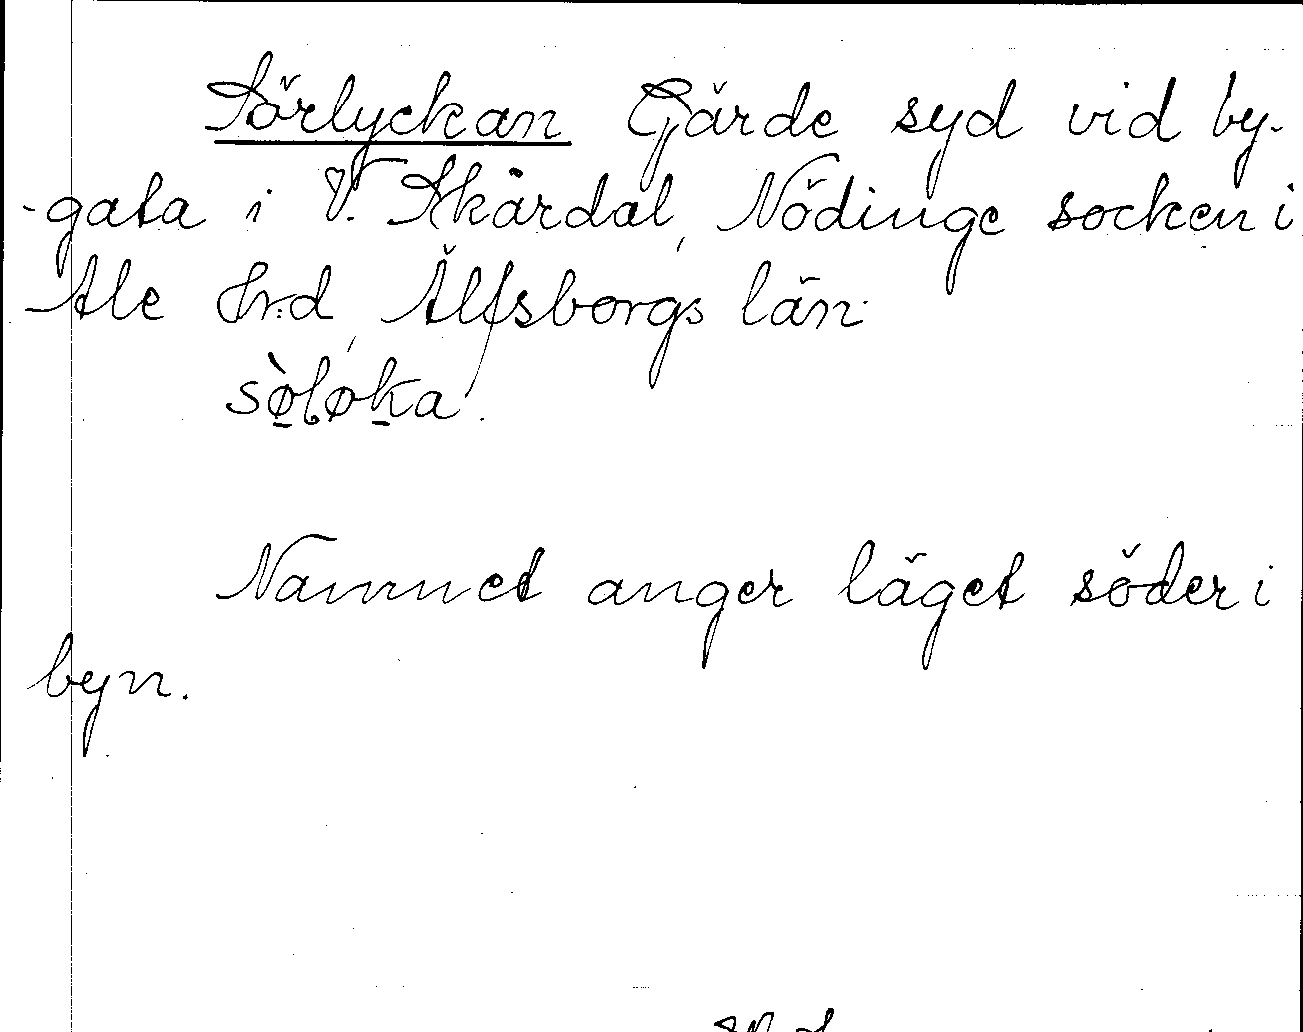 Sörlyckan Gärde syd vid by-
-gata i V. Skårdal, Nödinge socken i
Ale Hrd, Älfsborgs län.
sø̀løka.
Namnet anger läget söder i
byn.